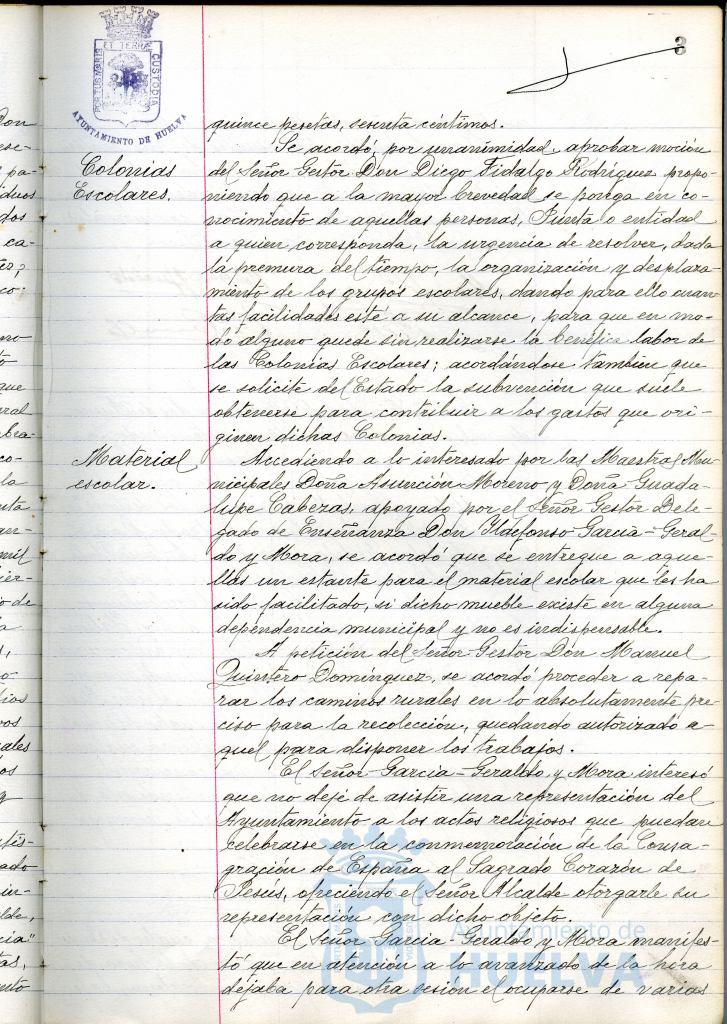 3
PORTUS MARIS
ET TERRE
CUSTODIA
AYUNTAMIENTO DE HUELVA
quince pesetas, sesenta céntimos.
Colonias
Escolares.
Se acordó, por unanimidad, aprobar moción
del Señor Gestor Don Diego Fidalgo Rodríguez propo-
niendo que a la mayor brevedad se ponga en co-
nocimiento de aquellas personas, Junta o entidad
a quien corresponda, la urgencia de resolver, dada
la premura del tiempo, la organización y desplaza
miento de los grupos escolares, dando para ello cuan-
tas facilidades esté a su alcance, para que en mo-
do alguno quede sin realizarse la benéfica labor de
las Colonias Escolares; acordándose también que
se solicite del Estado la subvención que suele
obtenerse para contribuir a los gastos que ori-
ginen dichas Colonias.
Material
escolar.
Accediendo a lo interesado por las Maestras Mu-
nicipales Doña Asunción Moreno y Doña Guada-
lupe Cabezas, apoyado por el Señor Gestor Dele-
gado de Enseñanza Don Ildefonso García-Geral-
do y Mora, se acordó que se entregue a aque-
llas un estante para el material escolar que les ha
sido facilitado, si dicho mueble existe en alguna
dependencia municipal y no es indispensable.
A petición del Señor Gestor Don Manuel
Quintero Domínguez, se acordó proceder a repa-
rar los caminos rurales en lo absolutamente pre-
ciso para la recolección, quedando autorizado a-
quel para disponer los trabajos.
El Señor García-Geraldo y Mora interesó
que no deje de asistir una representación del
Ayuntamiento a los actos religiosos que puedan
celebrarse en la conmemoración de la Consa-
gración de España al Sagrado Corazón de
Jesús, ofreciendo el Señor Alcalde otorgarle su
representación con dicho objeto.
El Señor García-Geraldo y Mora manifes-
tó que en atención a lo avanzado de la hora
dejaba para otra sesión el ocuparse de varias
Ayuntamiento de
HUELVA